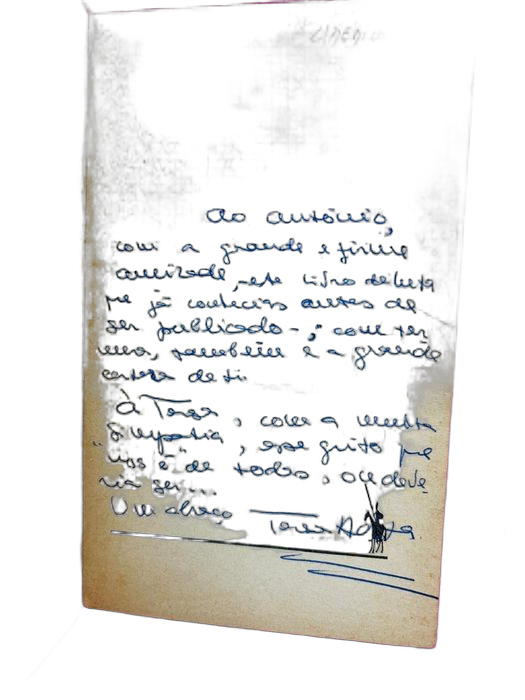 Ao António,
com a grande e firme
amizade, este livro de luta
que já conhecias antes de
ser publicado -, com ter
nura, também e a grande
certeza de ti.
À Teresa, com a muita
simpatia, esse grito que
"nos é" de todos, ou deve
ria ser...
Um abraço Teresa